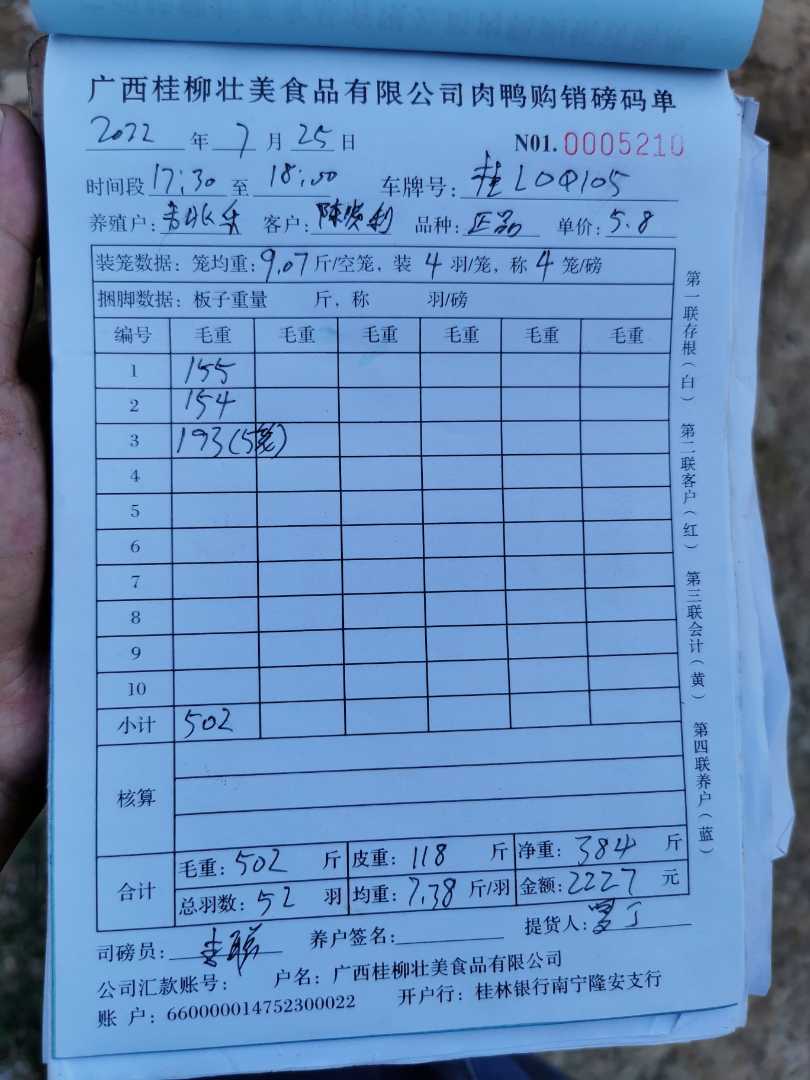 广西桂柳壮美食品有限公司肉鸭购销磅码单
2022 年 7 月 25 日 N01. 0005210
时间段 17:30 至 18:00 车牌号: 桂LDQ105
养殖户: 客户: 陈 利 品种: 正品 单价: 5.8
装笼数据: 笼均重: 9.07 斤/空笼, 装 4 羽/笼, 称 4 笼/磅
捆脚数据: 板子重量 斤, 称 羽/磅
编号 毛重 毛重 毛重 毛重 毛重 毛重
1 155
2 154
3 193(5笼)
4
5
6
7
8
9
10
小计 502
核算
合计
毛重: 502 斤 皮重: 118 斤 净重: 384 斤
总羽数: 52 羽 均重: 7.38 斤/羽 金额: 2227 元
司磅员: 养户签名: 提货人:
公司汇款账号: 户名: 广西桂柳壮美食品有限公司
账 户: 660000014752300022 开户行: 桂林银行南宁隆安支行
第一联存根(白) 第二联客户(红) 第三联会计(黄) 第四联养户(蓝)